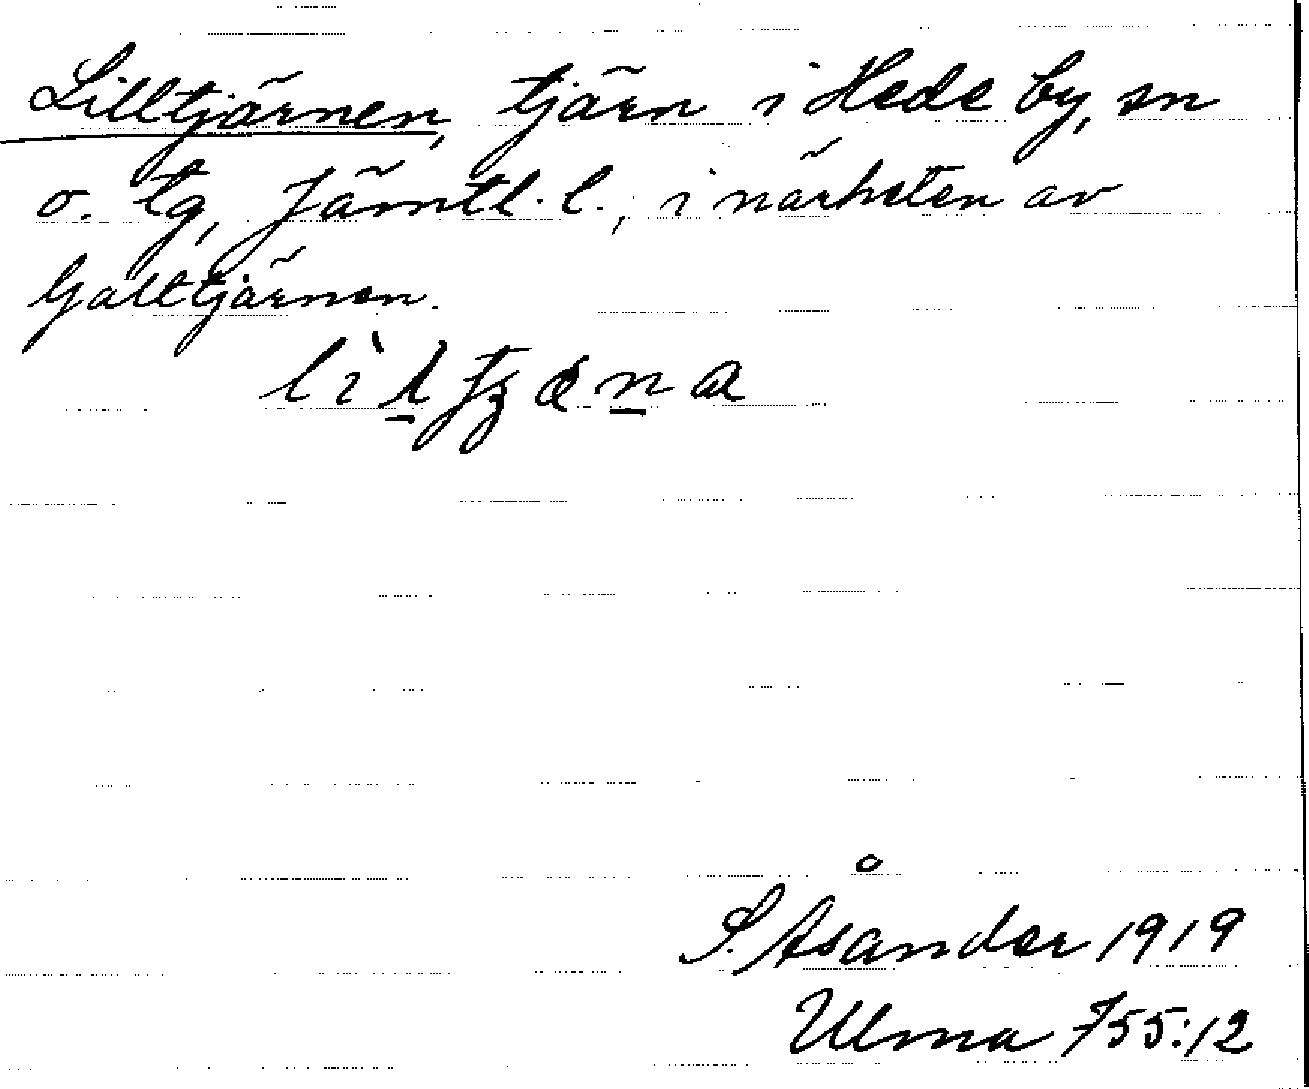 Lilltjärnen, tjärn i Hede by, sn
o. tg, Jämtl. l., i närheten av
Galttjärnen.
S. Åsander 1919
Ulma 755:12